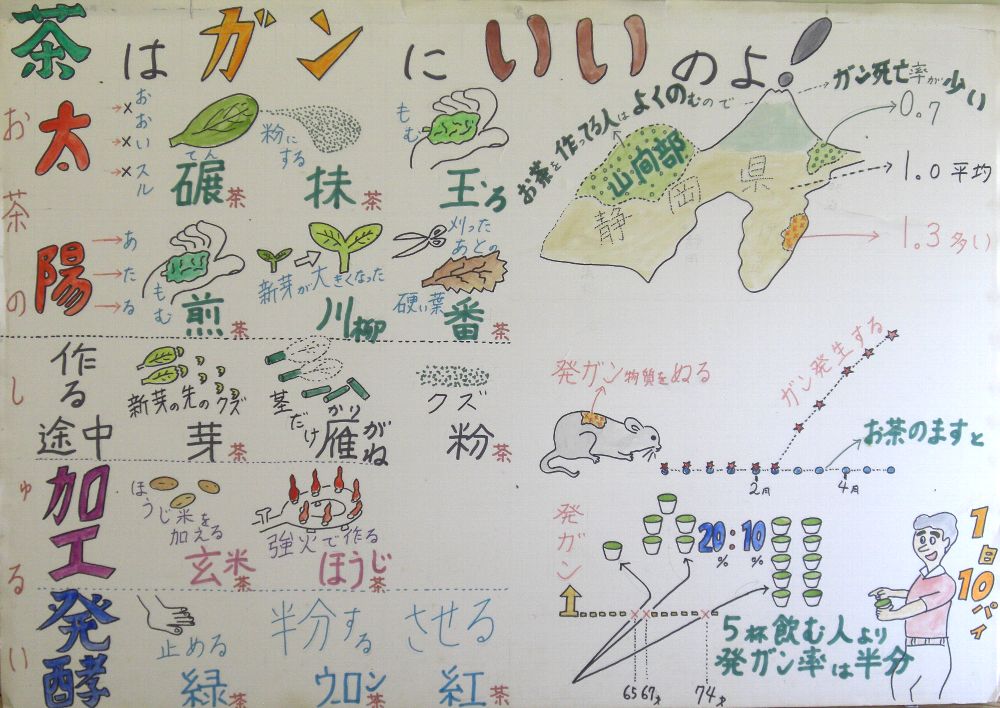 茶はガンにいいのよ!
お茶のしゅるい
太陽
×おおい
×スル
碾茶
てん
粉にする
抹茶
もむ
玉ろ
あたる
もむ
煎茶
新芽が大きくなった
川柳
刈ったあとの
硬い葉
番茶
作る途中
新芽の先のクズ
芽茶
茎だけ
かり
雁がね
クズ
粉茶
加工
ほうじ米を加える
玄米茶
強火で作る
ほうじ茶
発酵
止める
緑茶
半分する
ウーロン茶
させる
紅茶
お茶を作ってる人はよくのむので
ガン死亡率が少い
山間部
静岡県
0.7
1.0 平均
1.3 多い
発ガン物質をぬる
ガン発生する
お茶のますと
2月
4月
発ガン
20% : 10%
65 67才 74才
5杯飲む人より
発ガン率は半分
1日10パイ